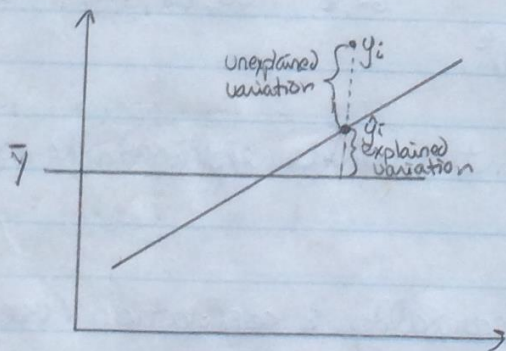 unexplained yi
variation
ŷi
explained
variation
ȳ